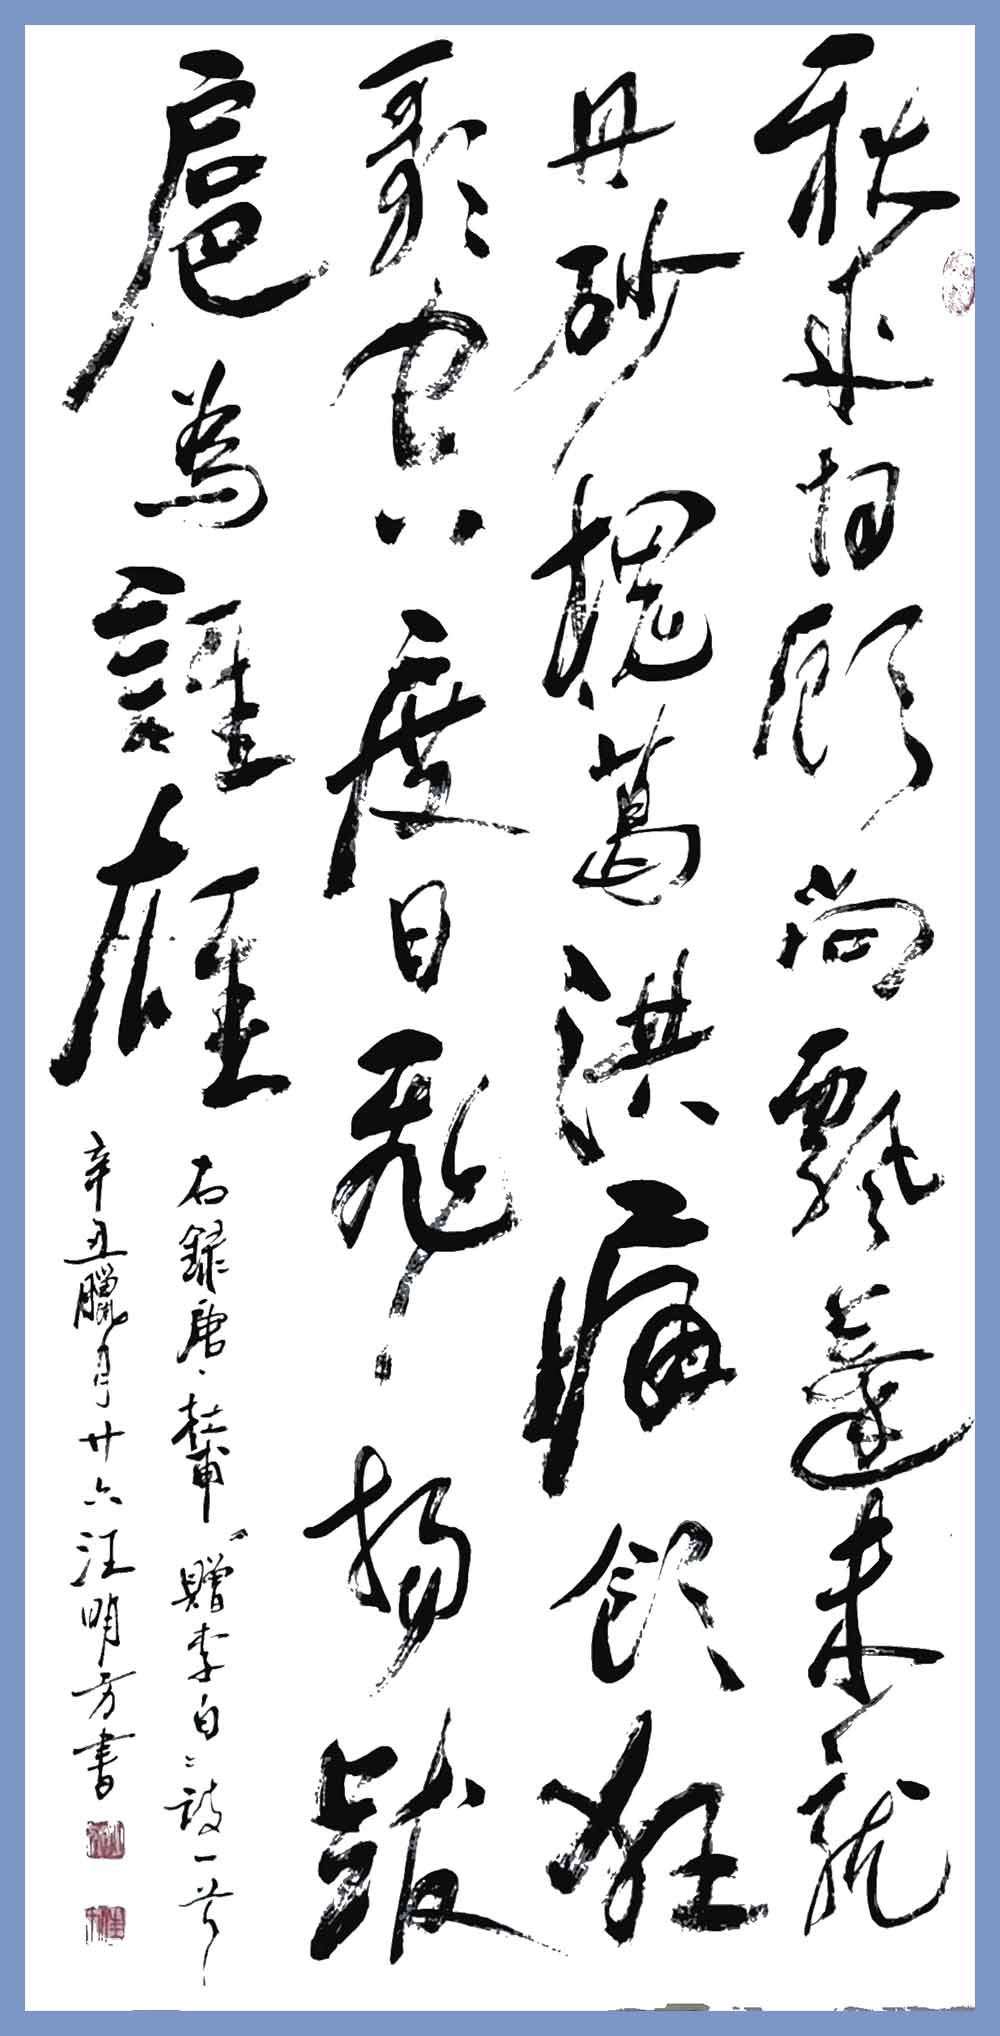 秋來相顧尚飄蓬未就
丹砂愧葛洪痛飲狂
歌空度日飛揚跋
扈為誰雄
右錄唐、杜甫〝贈李白〞詩一首
辛丑臘月廿六汪明方書